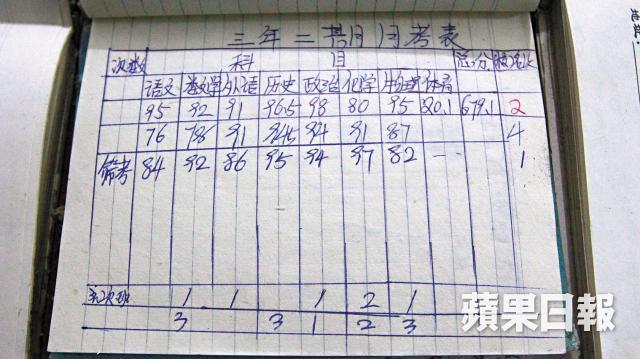 三年二期月月考表
次数 科 目 总分 校名次
语文 数学 外语 历史 政治 化学 物理 体育
95 92 91 96.5 98 80 95 30.1 679.1 2
76 78 91 94.5 94 91 87 4
84 92 86 95 94 97 82 1
1 1 1 2 1
3 3 1 2 3
蘋果日報